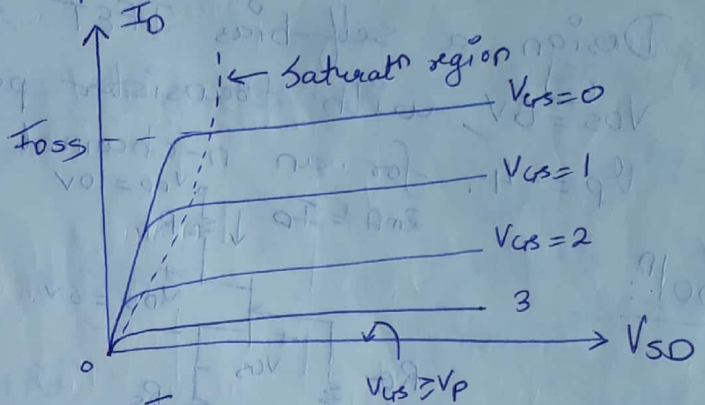 I_D
← Saturatⁿ region
V_GS=0
I_DSS
V_GS=1
V_GS=2
3
0
V_SD
V_GS ≥ V_P